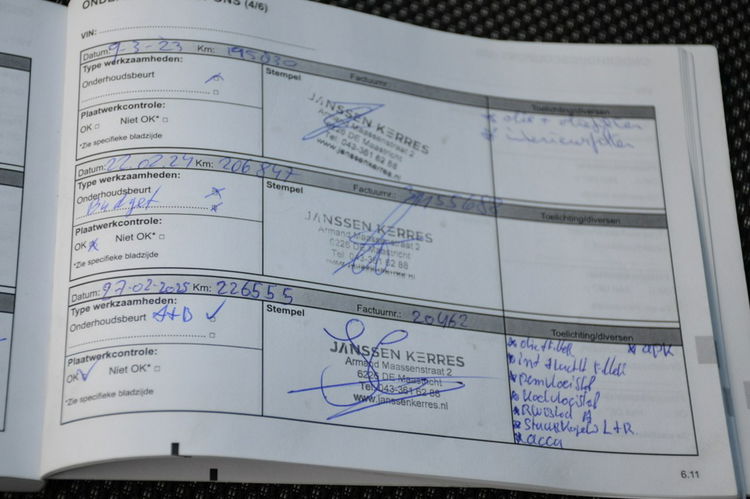 (4/6)
VIN:
Datum: 9-3-23 Km: 195030
Type werkzaamheden:
Onderhoudsbeurt
Plaatwerkcontrole:
OK Niet OK*
*Zie specifieke bladzijde
Stempel Factuurnr.:
JANSSEN KERRES
Armand Maassenstraat 2
6226 DE Maastricht
Tel. 043-361 62 88
www.janssenkerres.nl
Toelichting/diversen
olie +
interieurfilter
Datum: 22.02.24 Km: 206847
Type werkzaamheden:
Onderhoudsbeurt
Budget
Plaatwerkcontrole:
OK Niet OK*
*Zie specifieke bladzijde
Stempel Factuurnr.:
JANSSEN KERRES
Armand Maassenstraat 2
6226 DE Maastricht
Tel. 043-361 62 88
www.janssenkerres.nl
Toelichting/diversen
Datum: 27-02-2025 Km: 226555
Type werkzaamheden:
Onderhoudsbeurt A+B
Plaatwerkcontrole:
OK Niet OK*
*Zie specifieke bladzijde
Stempel Factuurnr.: 20462
JANSSEN KERRES
Armand Maassenstraat 2
6226 DE Maastricht
Tel. 043-361 62 88
www.janssenkerres.nl
Toelichting/diversen
oliefilter APK
int lucht filter
remvloeistof
koelvloeistof
A
L+R
accu
6.11